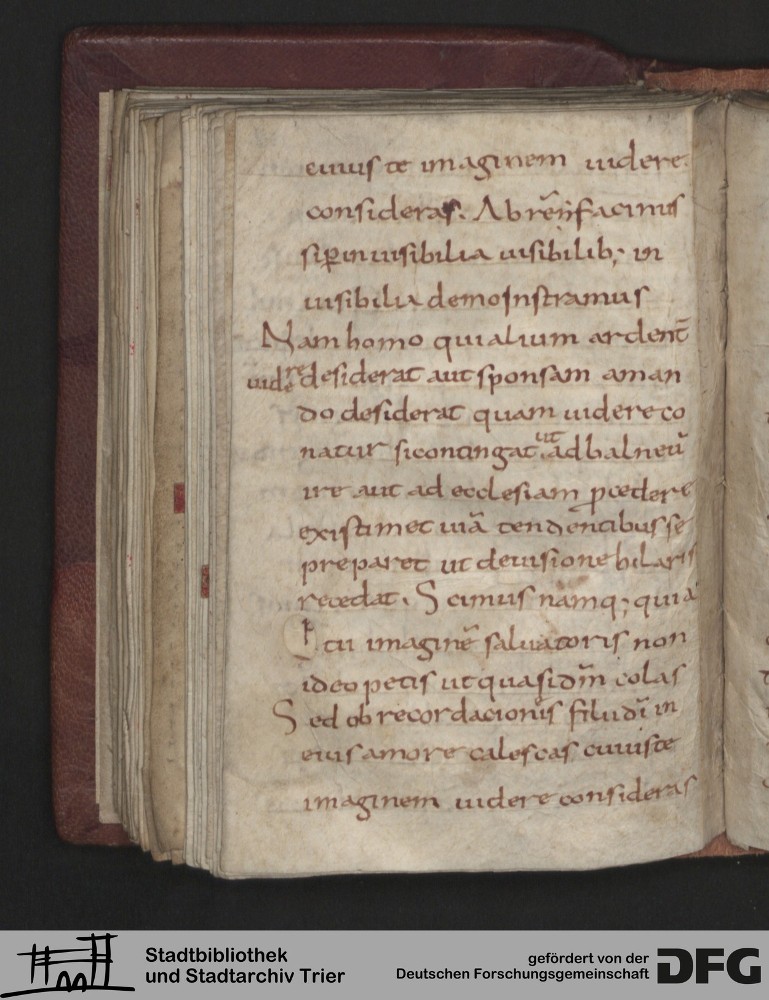 cuiusce imaginem uidere
consideras. Ab rēīī facimus
siꝑ inuisibilia uisibilib; in
uisibilia demonstramus
Nam homo qui alium ardent̄
uidere desiderat aut sponsam aman
do desiderat quam uidere co
natur si contingat ut ad balneū
ire aut ad ecclesiam ꝓcedere
existimet uiā tendentibus se
preparet ut de uisione hilaris
recedat. Scimus namq; quia
tu imaginē saluatoris non
ideo petis ut quasi dm̄ colas
Sed ob recordacionis filii dī in
eius amore calescas cuiusce
imaginem uidere consideras
Stadtbibliothek
und Stadtarchiv Trier
gefördert von der
Deutschen Forschungsgemeinschaft
DFG